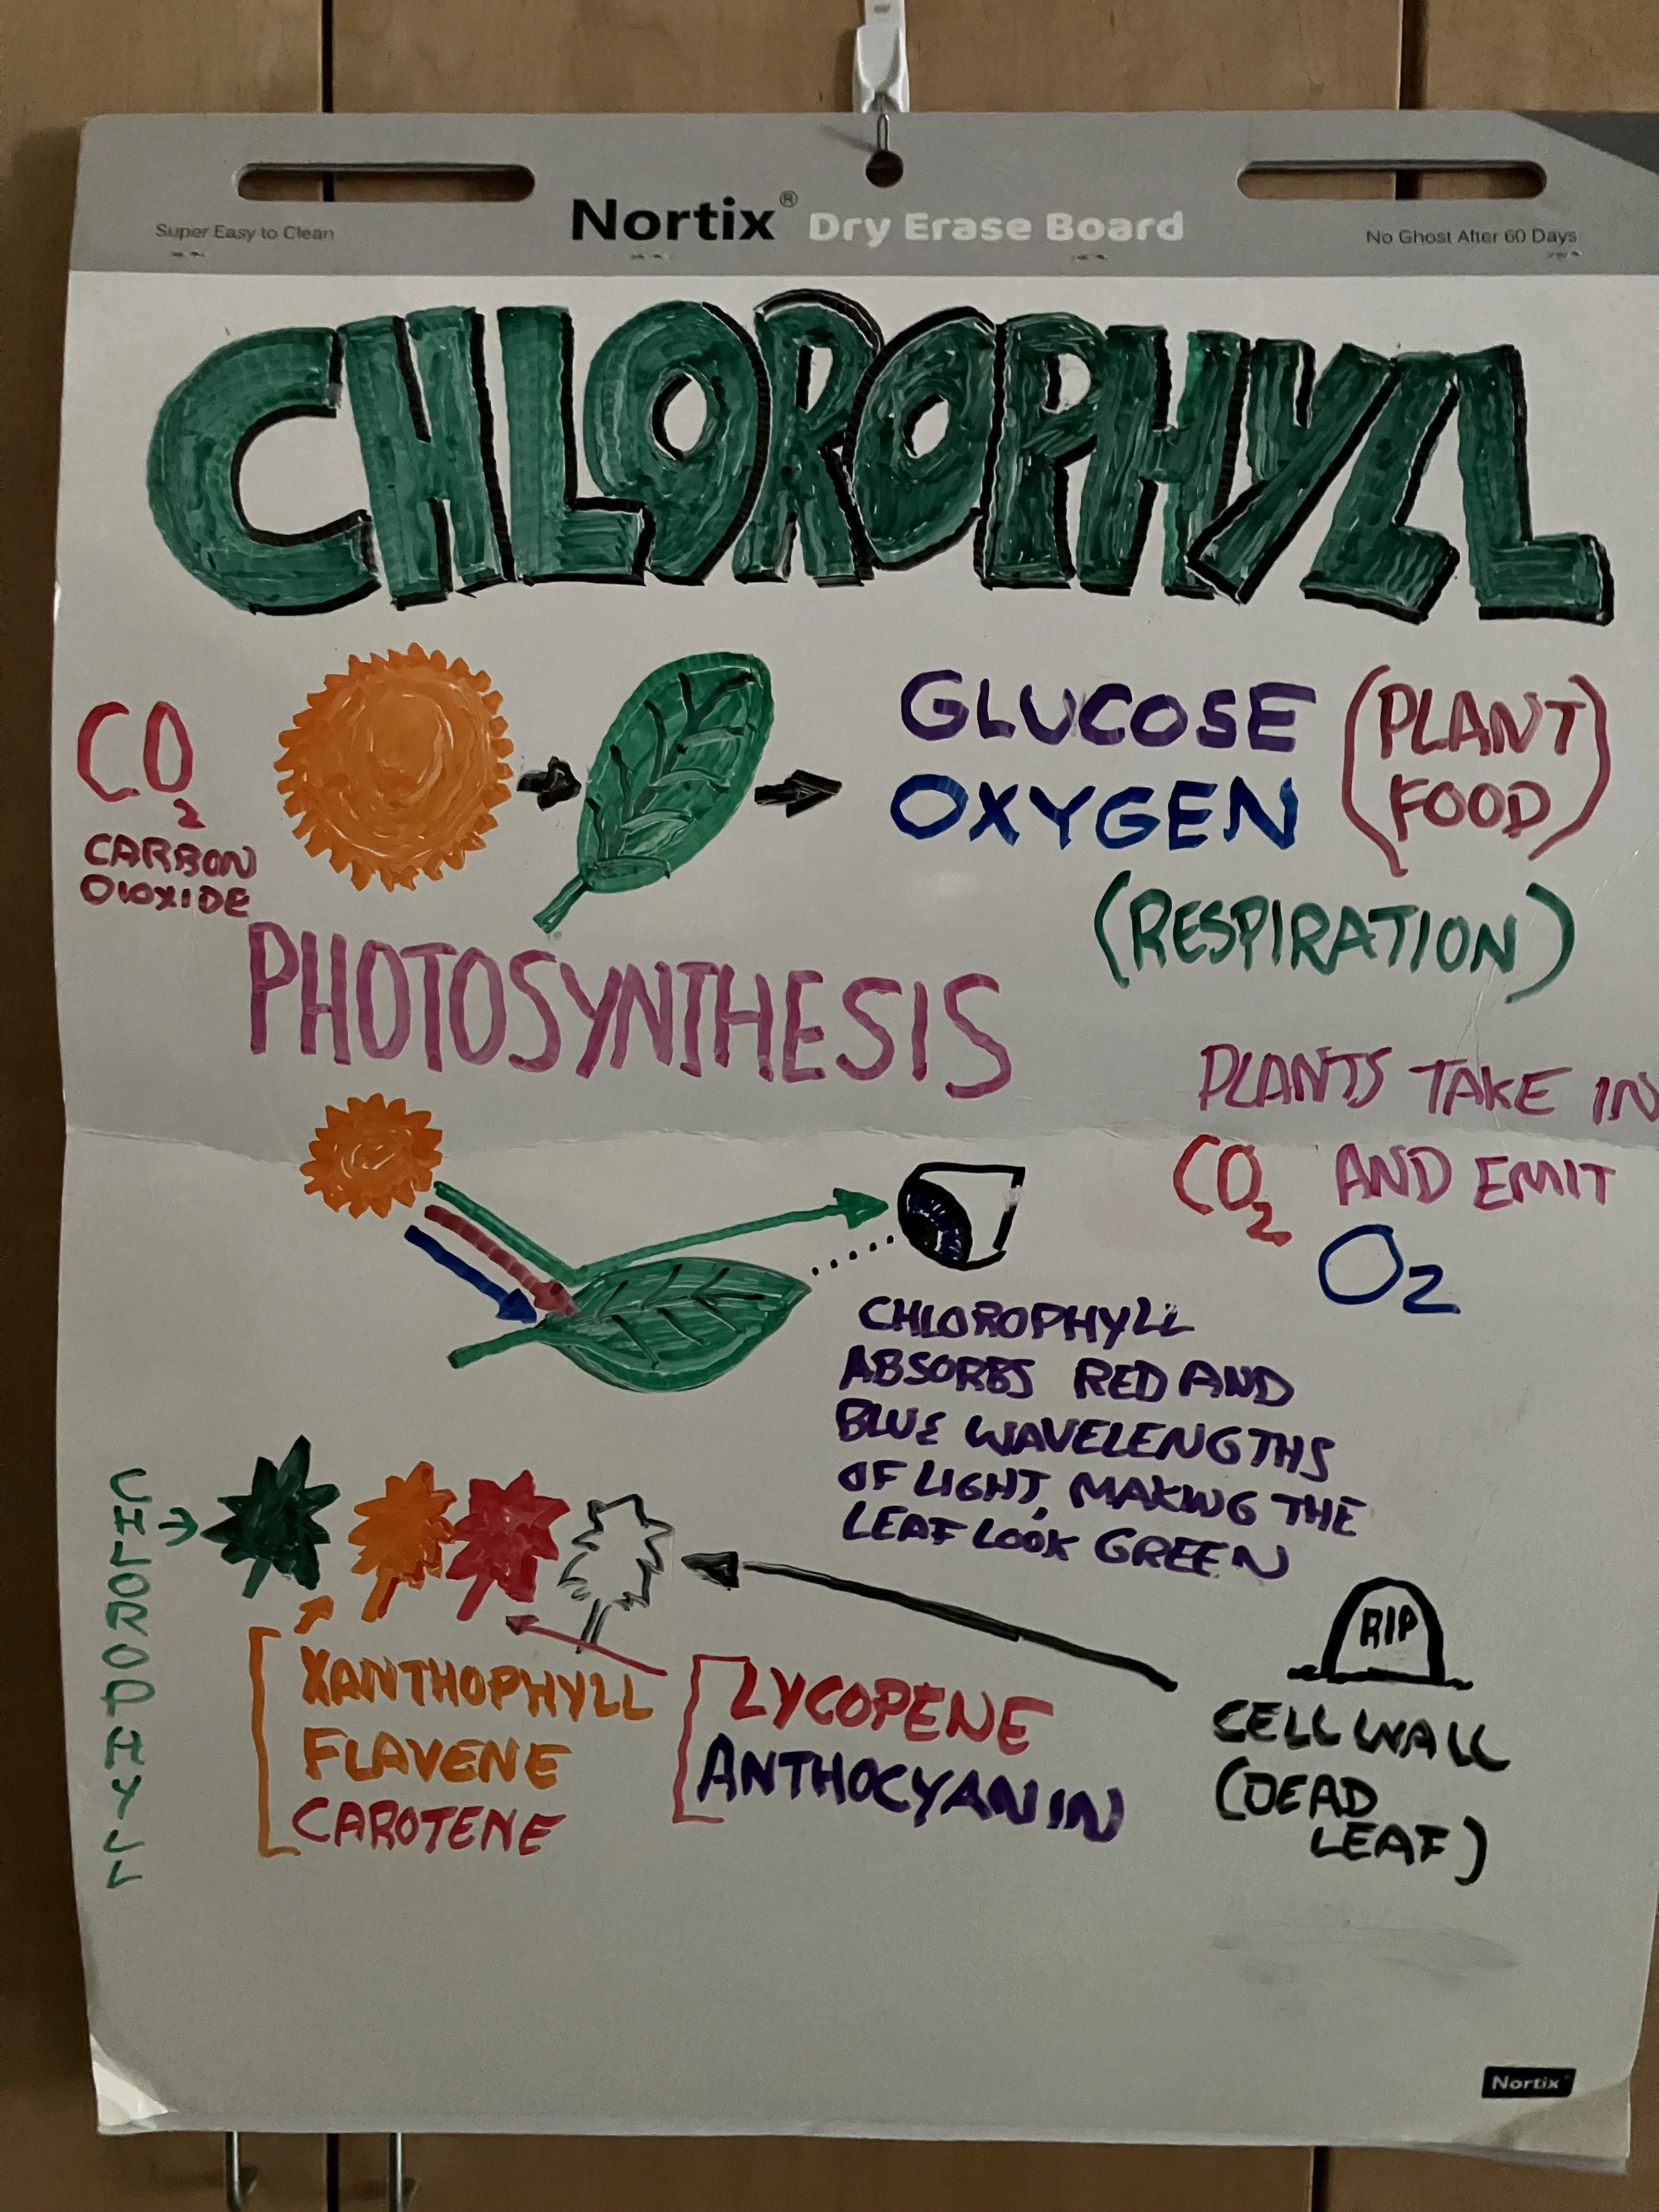 Super Easy to Clean
Nortix® Dry Erase Board
No Ghost After 60 Days
CHLOROPHYLL
CO2
CARBON
DIOXIDE
GLUCOSE (PLANT
OXYGEN FOOD)
(RESPIRATION)
PHOTOSYNTHESIS
PLANTS TAKE IN
CO2 AND EMIT
O2
CHLOROPHYLL
ABSORBS RED AND
BLUE WAVELENGTHS
OF LIGHT, MAKING THE
LEAF LOOK GREEN
CHLOROPHYLL
XANTHOPHYLL
FLAVENE
CAROTENE
LYCOPENE
ANTHOCYANIN
RIP
CELL WALL
(DEAD
LEAF)
Nortix